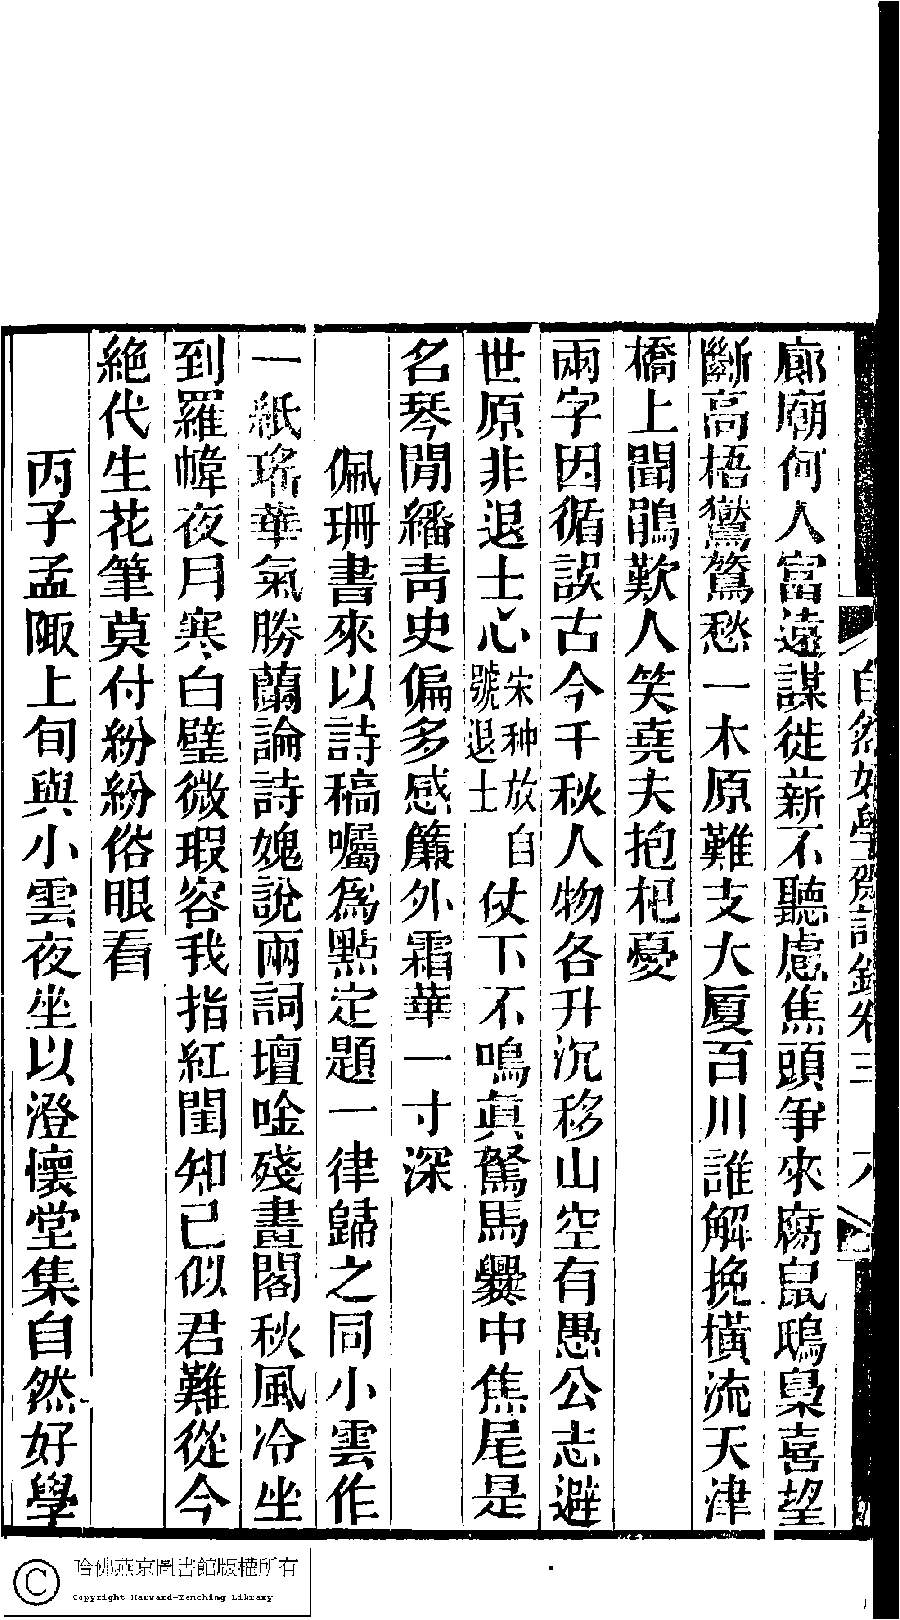 自然好學齋詩鈔卷三
廊廟何人富遠謀徙薪不聽慮焦頭爭來腐鼠鴟梟喜望
斷高梧鸞鷟愁一木原難支大廈百川誰解挽橫流天津
橋上聞鵑歎人笑堯夫抱杞憂
兩字因循誤古今千秋人物各升沉移山空有愚公志避
世原非退士心宋种放自號退士仗下不鳴眞駑馬爨中焦尾是
名琴閒繙靑史偏多感簾外霜華一寸深
佩珊書來以詩稿囑爲點定題一律歸之同小雲作
一紙瑤華氣勝蘭論詩媿說兩詞壇唫殘畫閣秋風冷坐
到羅幃夜月寒白璧微瑕容我指紅閨知己似君難從今
絶代生花筆莫付紛紛俗眼看
丙子孟陬上旬與小雲夜坐以澄懷堂集自然好學
哈佛燕京圖書館版權所有
Copyright Harvard-Yenching Library